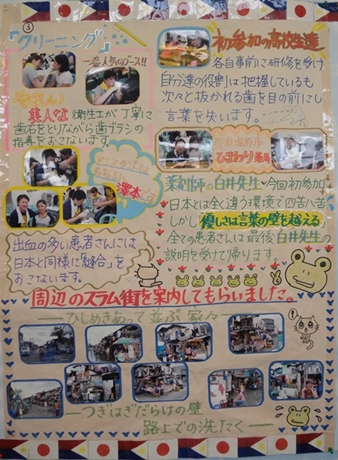 ③
『クリーニング』
一番人気のブース!!
美人な衛生士が丁寧に
歯石をとりながら歯ブラシの
指導をおこないます。
出血の多い患者さんには
日本と同様に「縫合」を
おこないます。
初参加の高校生達
各自事前に研修を受け
自分達の役割は把握しているも
次々と抜かれる歯を目の前にし
言葉を失います。
ひまわり薬局
薬剤師の白井先生も今回初参加
日本とは全く違う環境で四苦八苦
しかし優しさは言葉の壁を越える
全ての患者さんは最後、白井先生の
説明を受けて帰ります。
周辺のスラム街を案内してもらいました。
ひしめきあって並ぶ家々
つぎはぎだらけの壁
路上での洗たく